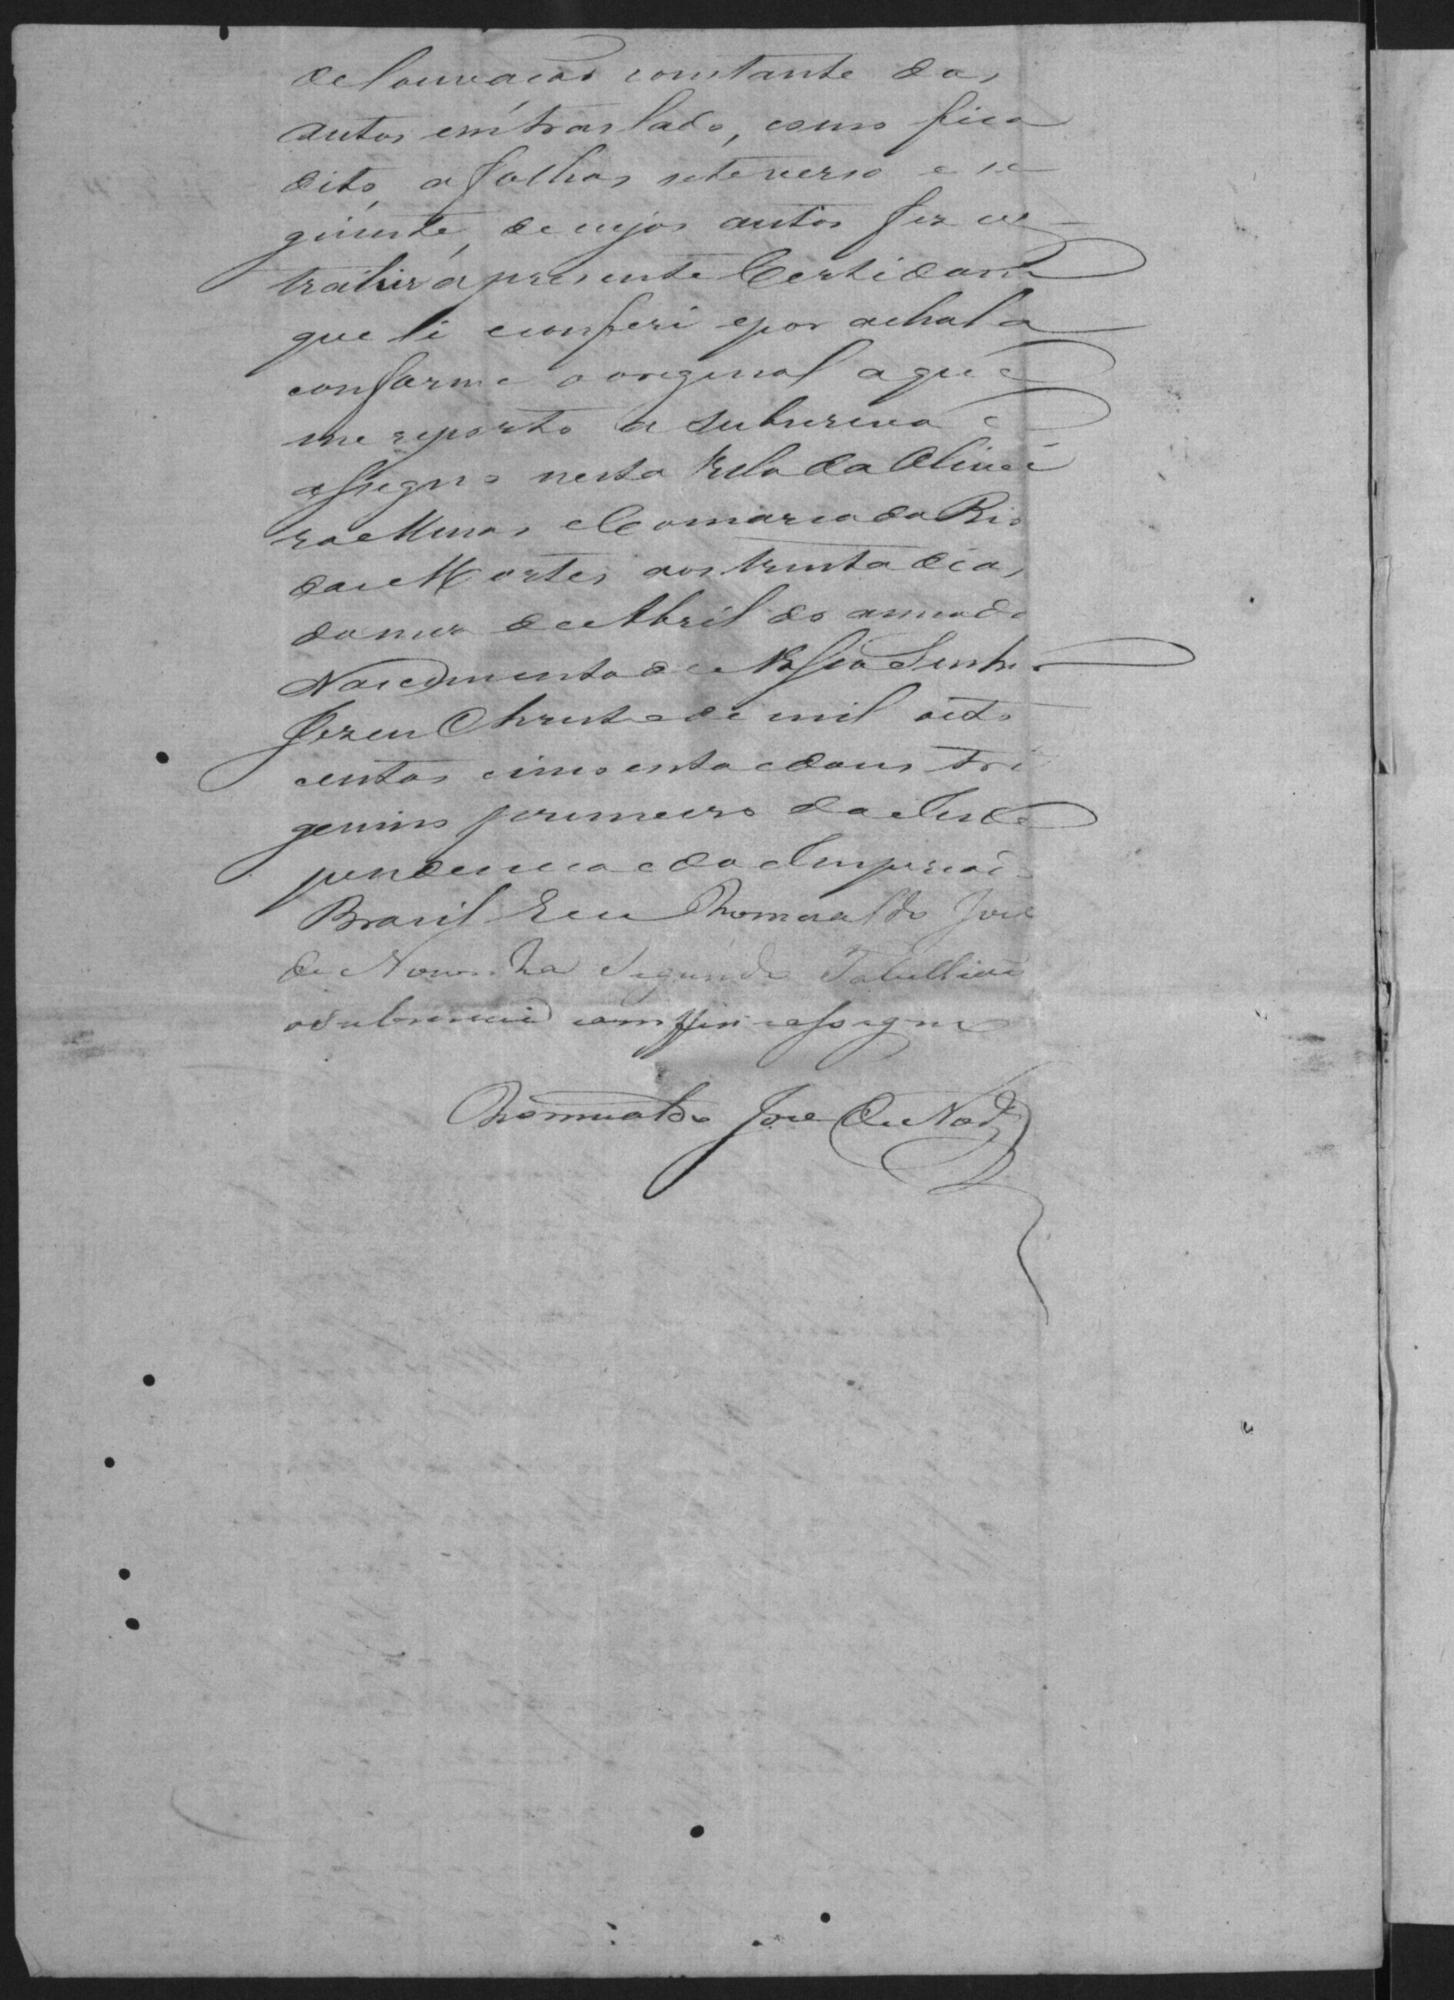 de louvacão constante dos
autos em traslado, como fica
dito, a folhas sete verso e se
guinte, de cujos autos fez ex
trahir a presente Certidam
que li e conferi e por achala
conforme o original a que
me reporto a subscrevo e
assigno nesta Villa da Olivei
ra e Minas e Comarca do Rio
das Mortes aos trinta dias
do mez de Abril do anno do
Nascimento de Nosso Senhor
Jezus Christo de mil oito
centos cincoenta e dous tri
gesimo primeiro da Inde
pendencia e do Imperio
Brasil Eu Romualdo José
de Noronha Segundo Tabellião
o subscrevi conferi e assigno
Romualdo José de Nor.